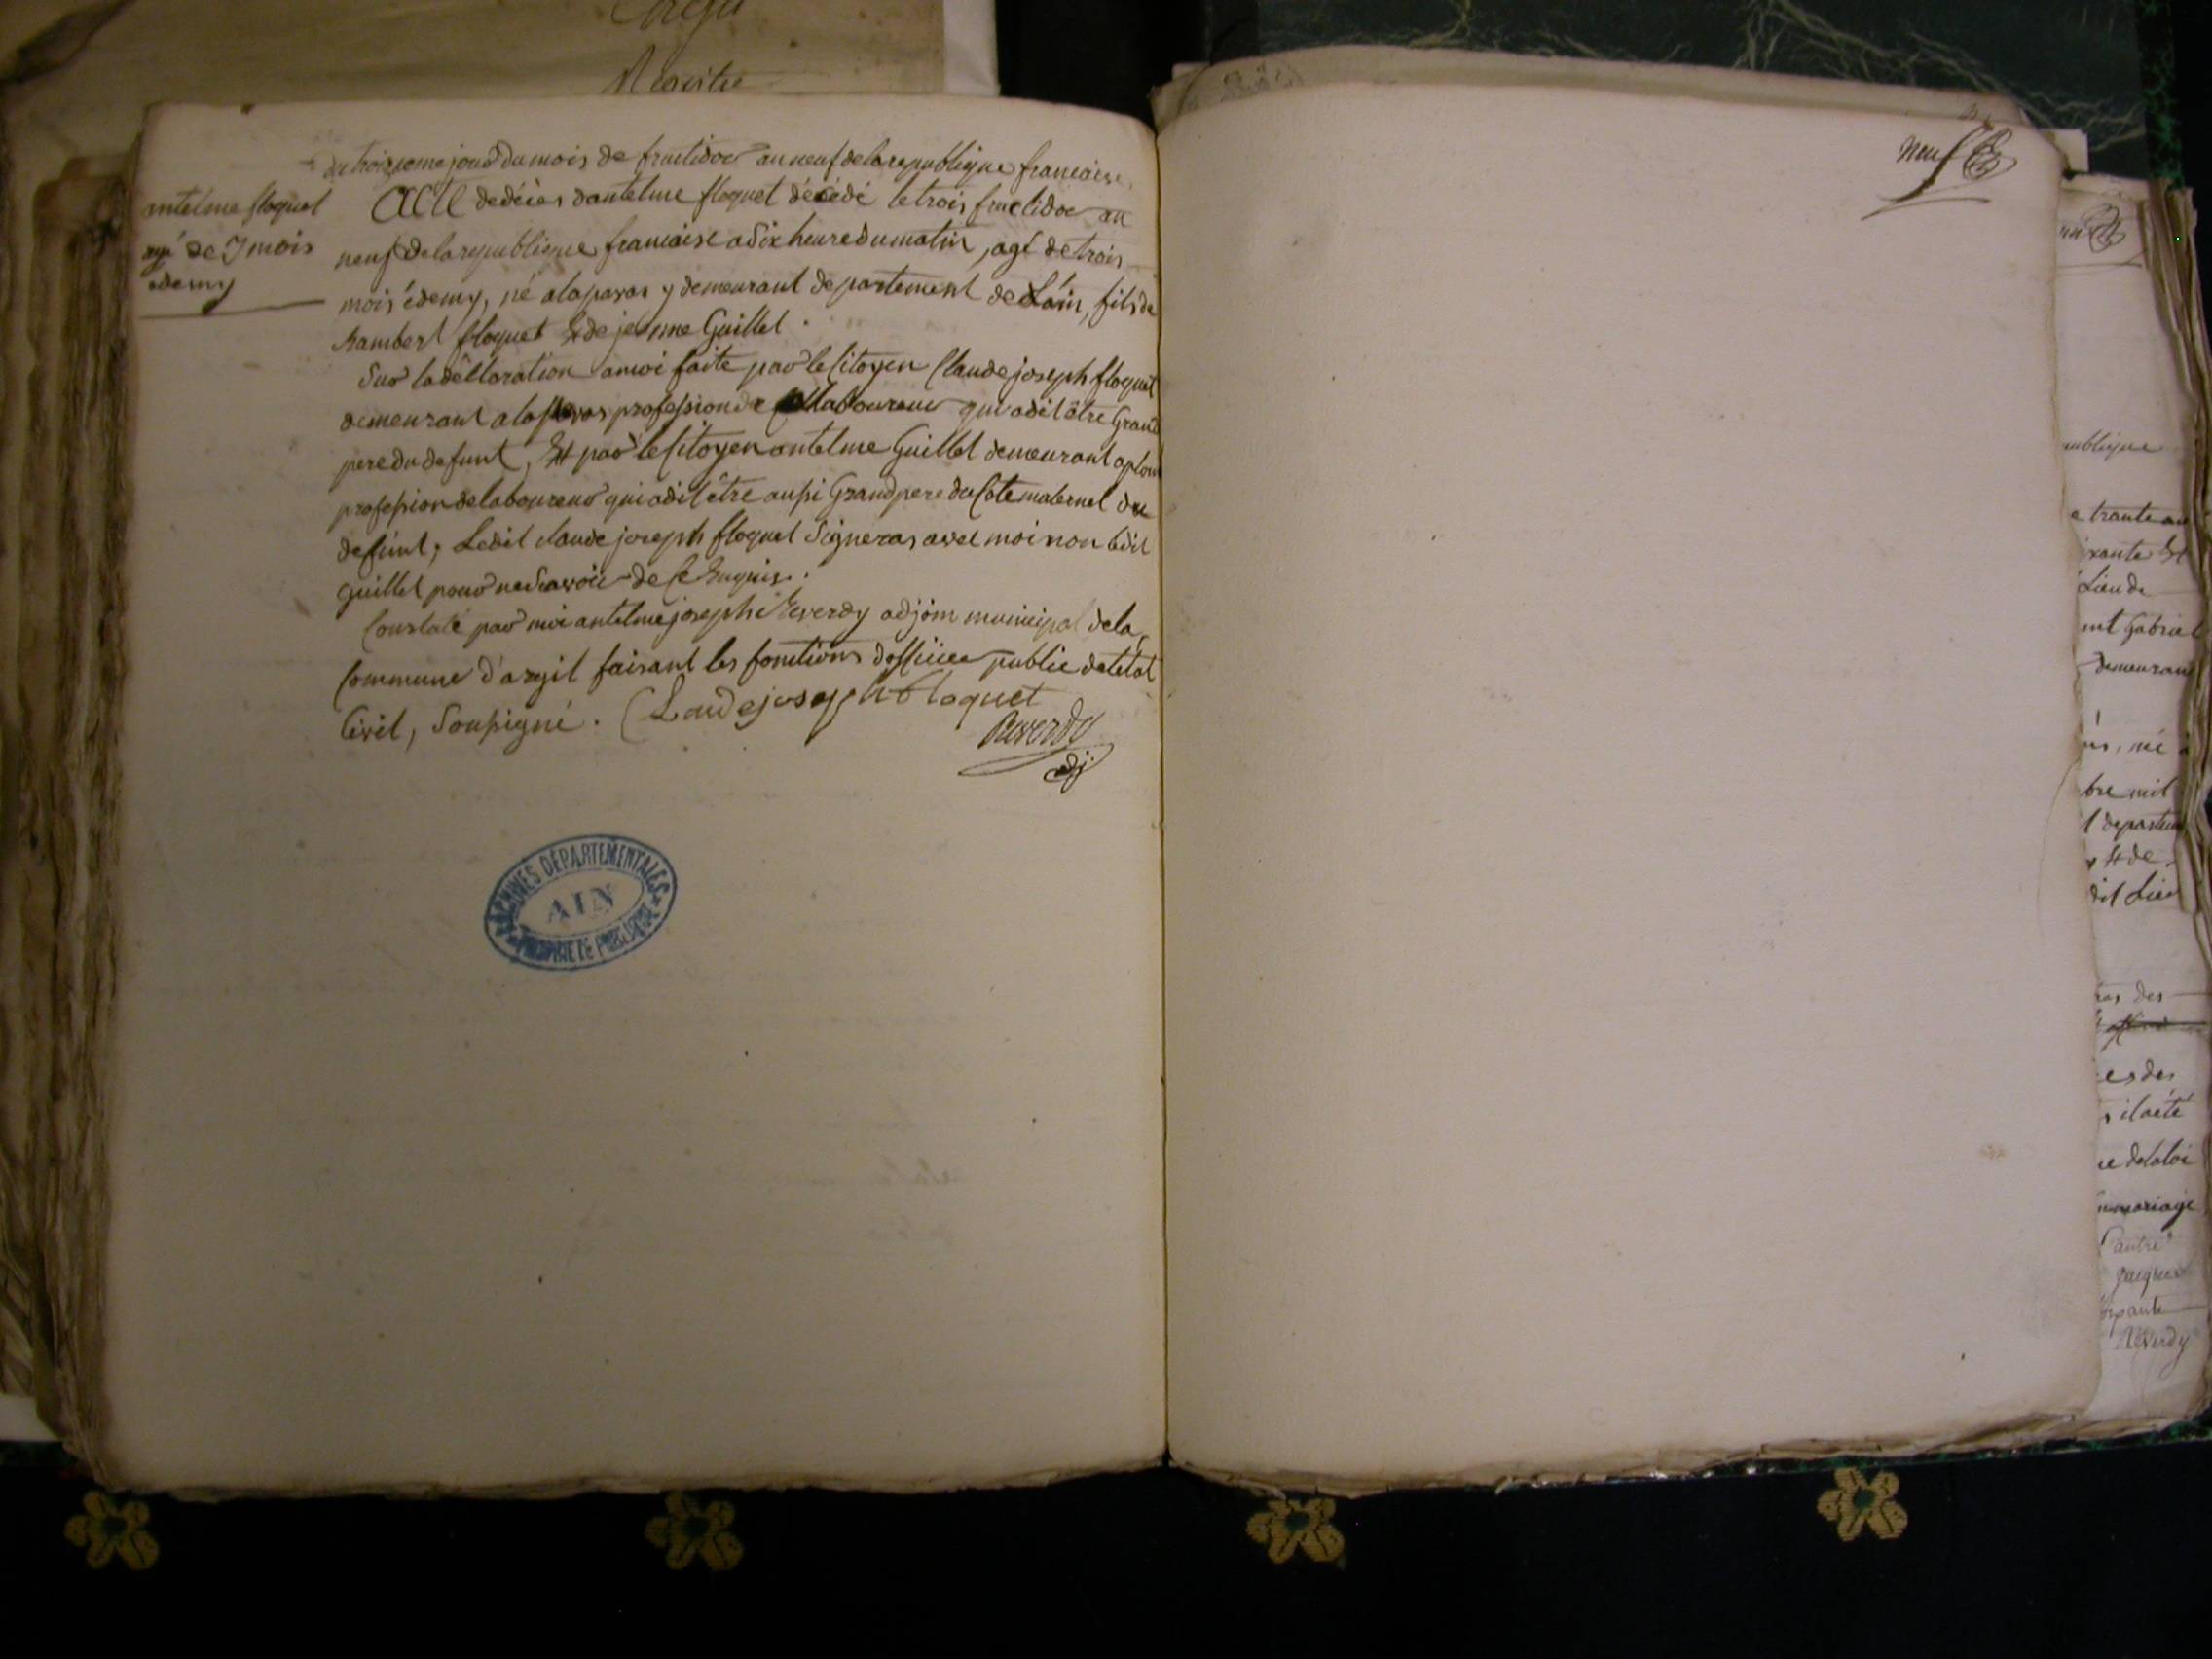 Registre
du troisieme jour du mois de fructidor an neuf de la republique francaise
antelme floquet
agé de 3 mois
edemy
Acte dedéces dantelme floquet décédé le trois fructidor an
neuf de la republique francaise a dix heure du matin, agé de trois
mois édemy, né alaparas y demeurant departement de Lain, fils de
Rambert floquet Et de jeanne Guillet.
Sur la déclaration amoi faite par le Citoyen Claude joseph floquet
demeurant alaparas profession de laboureur qui adit être Grand
pere du defunt, Et par le Citoyen antelme Guillet demeurant
profession de laboureur qui adit être aussi Grand pere du Coté maternel du
defunt, Ledit claude joseph floquet Signeras avec moi non ledit
Guillet pour ne Savoir de Ce Enquis.
Constaté par moi antelme joseph Reverdy adjoin municipal de la
Commune d'argit faisant les fonctions dofficier public de letat
Civil, Soussigné. Laudejoseph floquet
Reverdy
adj
ARCHIVES DÉPARTEMENTALES
AIN
PROPRIÉTÉ PUBLIQUE
neuf
ublique
e trante
ixante Et
Lieu de
ent Gabriel
demeurant
né
bre mil
t departem
Et de
dit Lieu
des
es des
ilaété
ce delaloi
mariage
autre
Reverdy